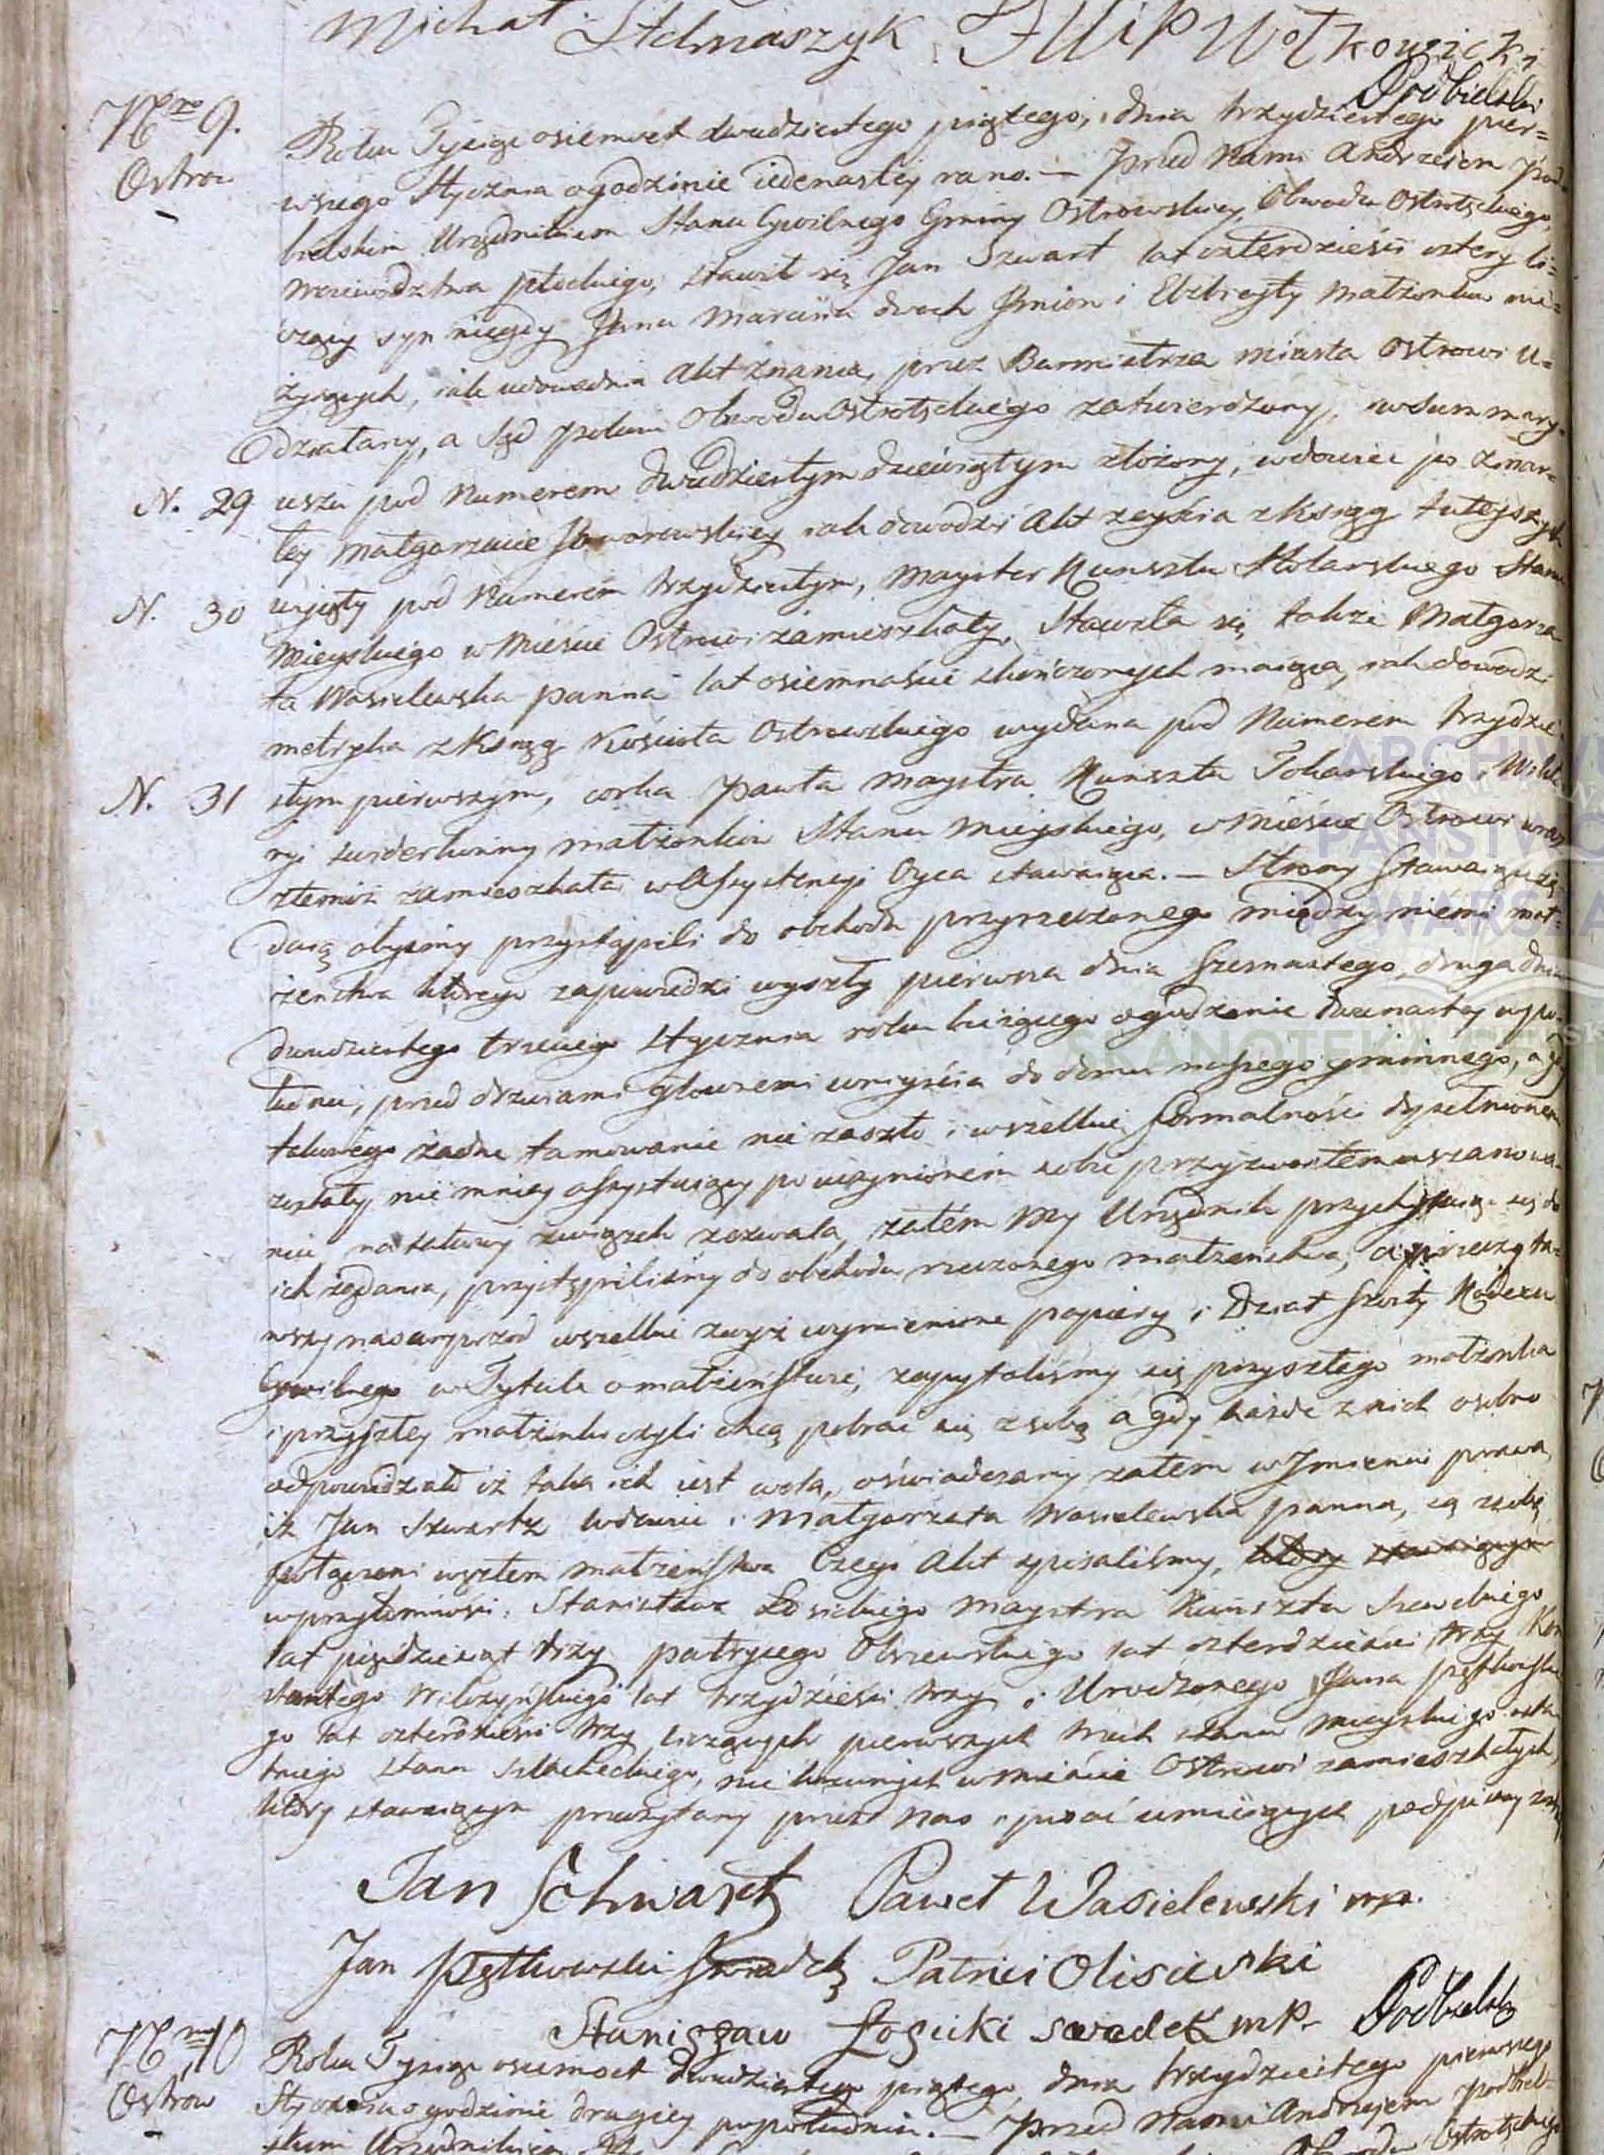 Michał Stelmaszyk Filip Wołkowicki
Podbielski
Nro 9.
Ostrow
Roku Tysiąc osiemset dwudziestego piątego, dnia trzydziestego pier=
wszego Stycznia o godzinie iedenastey rano. — Przed Nami Andrzeiem Pod
bielskim Urzędnikiem Stanu Cywilnego Gminy Ostrowskiey, Obwodu Ostrołęckiego,
Woiewództwa płockiego, stawił się Jan Szwart lat czterdzieści cztery li=
czący syn niegdy Jana Marcina dwoch Jmion i Elżbiety Małżonków nie=
żyiących, iak udowadnia Akt znania, przez Burmistrza miasta Ostrowi U=
działany, a Sąd pokoiu Obwodu Ostrołęckiego zatwierdzony, w Summary=
N. 29 uszu pod Numerem dwudziestym dziewiątym złożony, wdowiec po zmar=
łey Małgorzacie Jaworowskiey iak dowodzi Akt zeyścia z Ksiąg tuteyszych
N. 30 wyięty pod Numerem trzydziestym, Mayster Kunsztu Stolarskiego Stanu
Mieyskiego w Mieście Ostrowi zamieszkały, Stawiła się także Małgorza
ta Wasielewska panna lat osiemnaście skończonych maiąca, iak dowodzi
metryka z Ksiąg Kościoła Ostrowskiego wydana pod Numerem trzydzie
N. 31 stym pierwszym, corka Pawła Maystra Kunsztu Tokarskiego i Wikto
ryi małżonków Stanu Mieyskiego, w Mieście Ostrowi wraz
z temiż zamieszkała w Assystencyi Oyca stawaiąca. — Strony Stawaiące żą
daią abyśmy przystąpili do obchodu przyrzeczonego między niemi mał=
żenstwa którego zapowiedzi wyszły pierwsza dnia Szesnastego, druga dnia
dwudziestego trzeciego Stycznia roku bieżącego o godzinie dwunastey w po=
łudnie, przed drzwiami głownemi wniyścia do domu naszego gminnego, a gdy
takowego żadne tamowanie nie zaszło i wszelkie formalności dopełnionemi
zostały, nie mniey assystuiący po uczynionem sobie przyzwoitem uszanowa=
niu na takowy związek zezwala, zatém My Urzędnik przychylaiąc się do
ich żądania, przystąpiliśmy do obchodu rzeczonego małżeństwa, a przeczyta=
wszy naprzod wszelkie zwyż wymienione papiery i Dział Szosty Kodexu
Cywilnego w Tytule o małżeństwie, zapytaliśmy się przyszłego małżonka
i przyszłey małżonki czyli chcą pobrać się z sobą a gdy każde z nich osobno
odpowiedziało iż taka ich iest wola, oświadczamy zatem w Jmieniu prawa,
iż Jan Szwartz wdowiec i Małgorzata Wasielewska panna, są z sobą
połączeni węzłem małżeństwa Czego Akt spisaliśmy, który stawaiącym
w przytomności: Stanisława Łosickiego Maystra Kunsztu Szewckiego
lat pięćdziesiąt trzy Patrycego Olszewskiego lat czterdzieści trzy Kon
stantego Wilczyńskiego lat trzydzieści trzy i Urodzonego Jana Pętkowskie
go lat czterdzieści trzy liczących pierwszych trzech stanu Mieyskiego osta
tniego stanu szlacheckiego, nie krewnych w Mieście Ostrowi zamieszkałych,
który stawaiącym przeczytany przez nas i pisać umieiących podpisany został
Jan Schwartz Paweł Wasielewski mp.
Jan Pętkowski Swiadek Patrici Olisieski
Stanisgaw Łosicki swadek mP. Podbielski
Nro 10
Ostrow
Roku Tysiąc osiemset dwudziestego piątego, dnia trzydziestego pierwszego
Stycznia o godzinie drugiey popołudniu. — Przed Nami Andrzejem Podbiel=
skim Urzędnikiem Ostrołęckiego